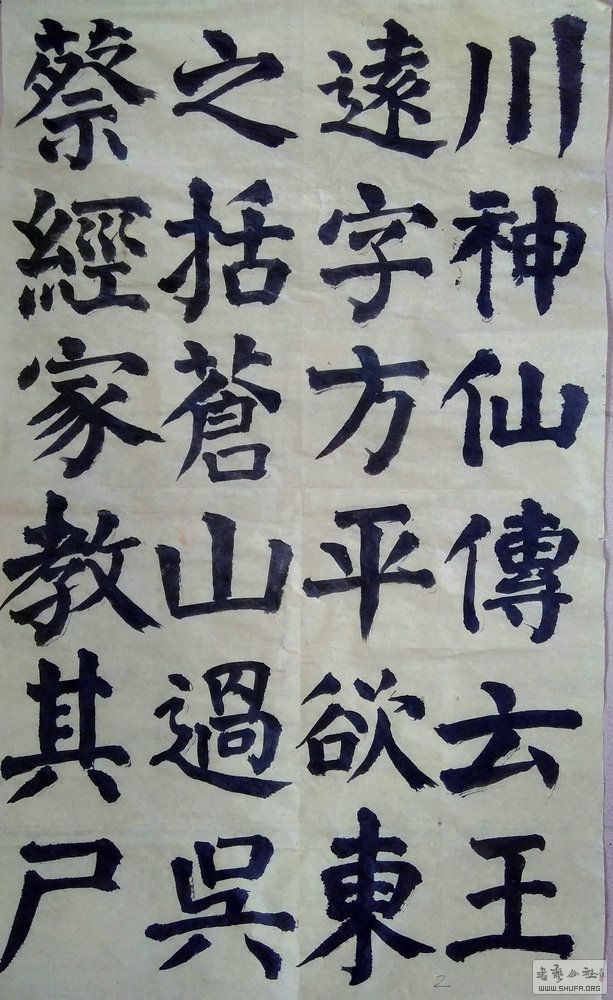 川神仙傳云王
遠字方平欲東
之括蒼山過吳
蔡經家教其尸
2
WWW.SHUFA.ORG